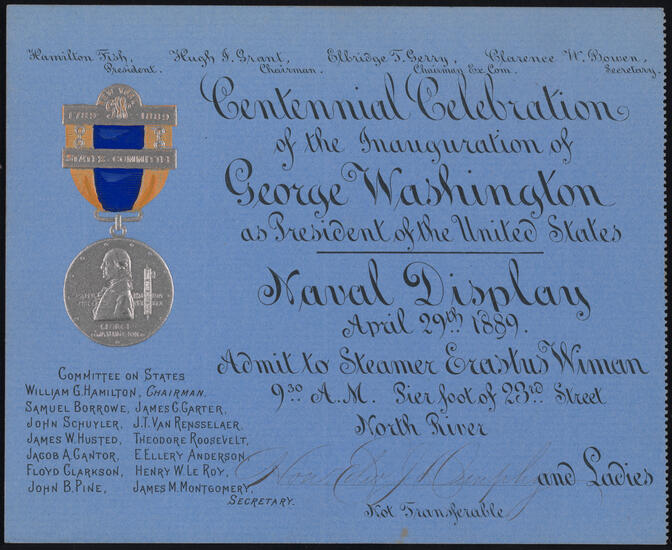 Hamilton Fish, Hugh J. Grant, Elbridge T. Gerry, Clarence W. Bowen,
President. Chairman. Chairman Ex. Com. Secretary.
Centennial Celebration
of the Inauguration of
George Washington
as President of the United States
Naval Display
April 29th 1889.
Admit to Steamer Erastus Wiman
9 30 A.M. Pier foot of 23rd Street
North River
and Ladies
Not Transferable
1789 1889
STATES COMMITTEE
GEORGE
WASHINGTON
COMMITTEE ON STATES
WILLIAM G. HAMILTON, CHAIRMAN.
SAMUEL BORROWE, JAMES C. CARTER,
JOHN SCHUYLER, J.T. VAN RENSSELAER,
JAMES W. HUSTED, THEODORE ROOSEVELT,
JACOB A. CANTOR, E. ELLERY ANDERSON,
FLOYD CLARKSON, HENRY W. LE ROY,
JOHN B. PINE, JAMES M. MONTGOMERY,
SECRETARY.